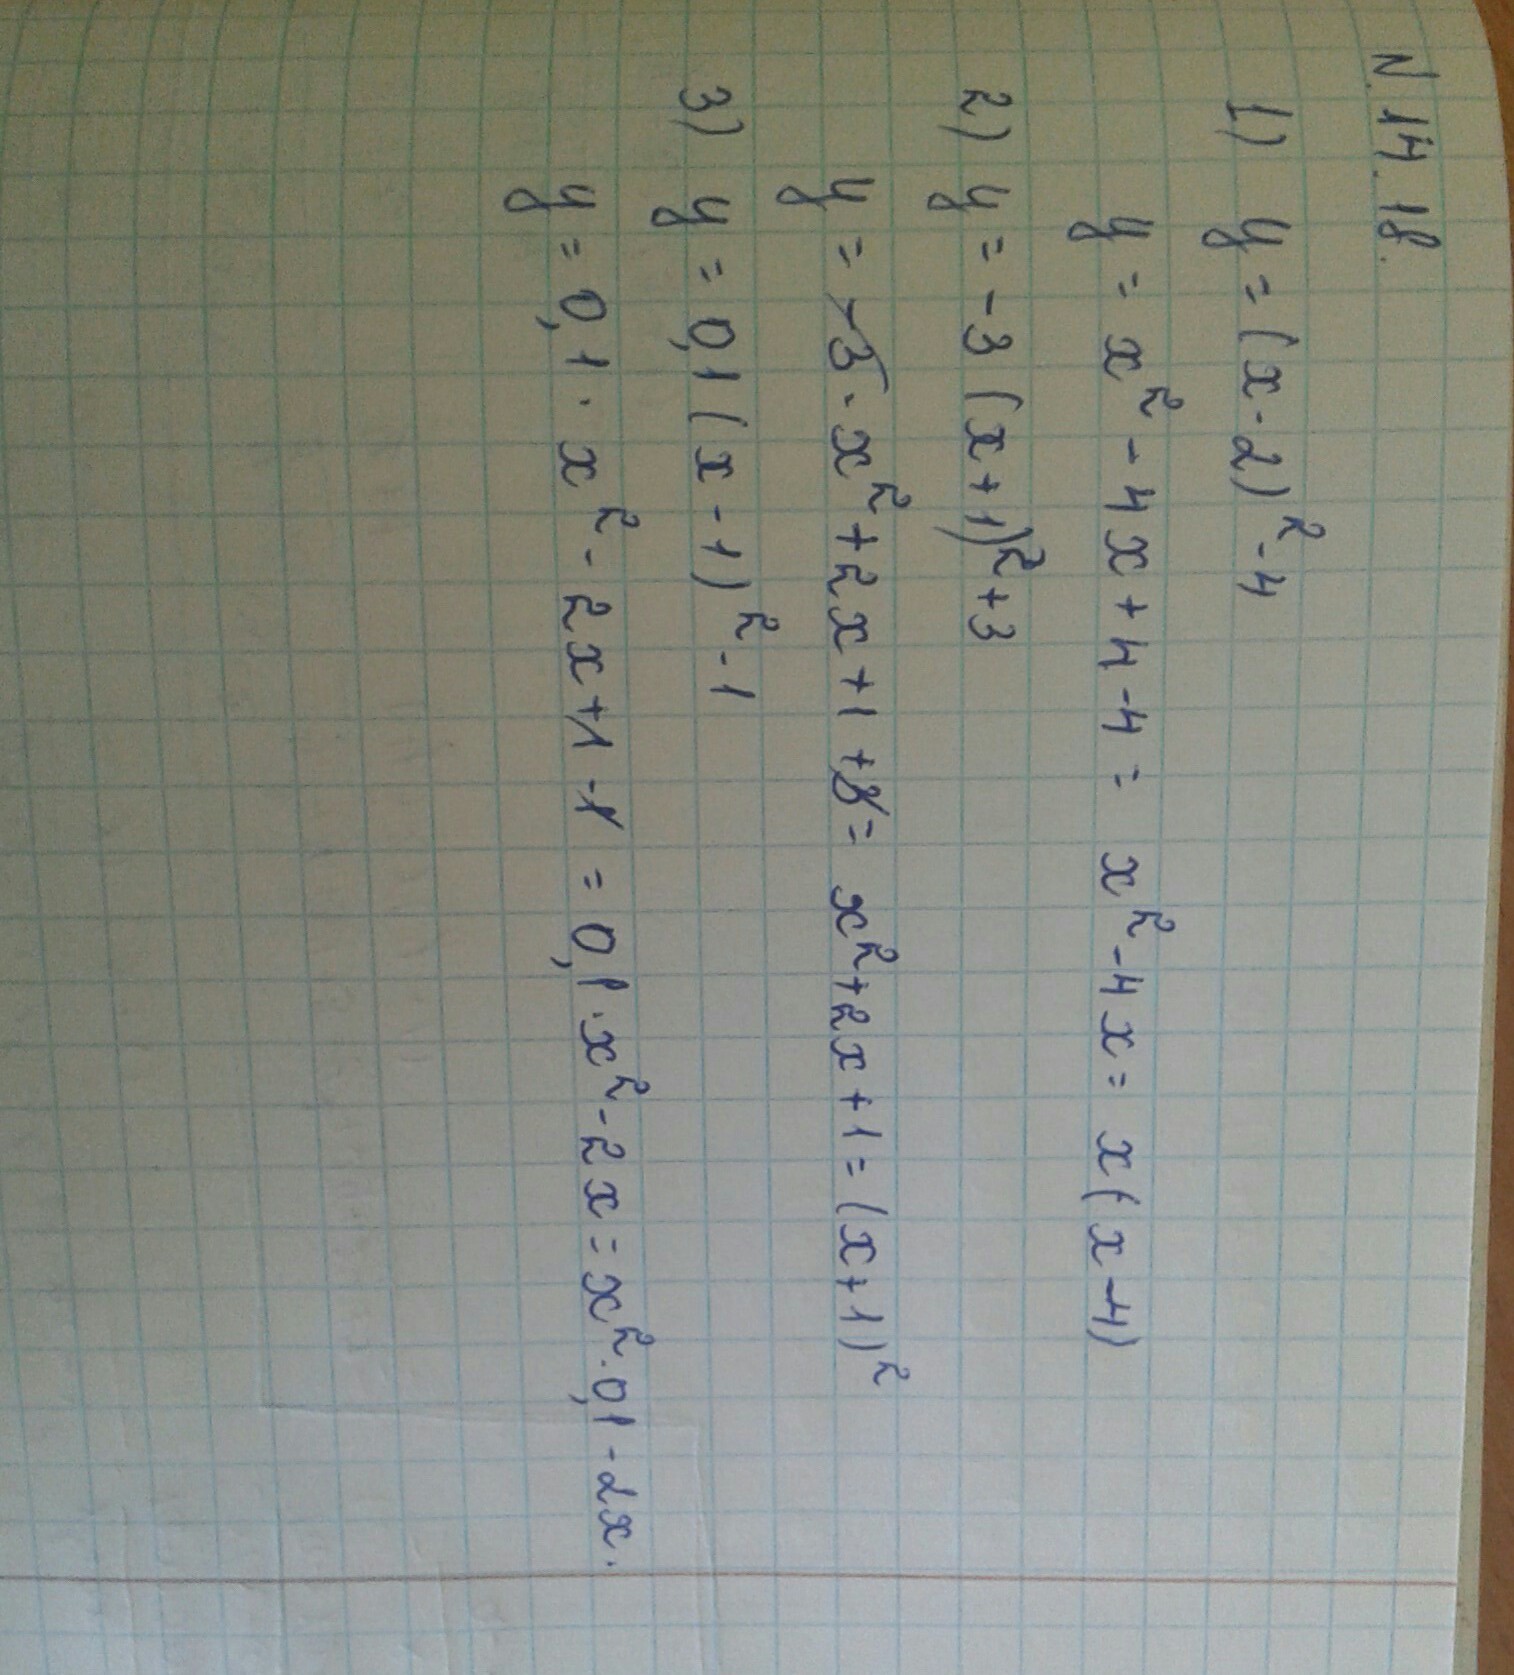 N. 14. 18.
1) y = (x - 2)² - 4
y = x² - 4x + 4 - 4 = x² - 4x = x(x - 4)
2) y = -3(x + 1)² + 3
y = -3 · x² + 2x + 1 + 3 = x² + 2x + 1 = (x + 1)²
3) y = 0,1(x - 1)² - 1
y = 0,1 · x² - 2x + 1 - 1 = 0,1 · x² - 2x = x² · 0,1 - 2x.